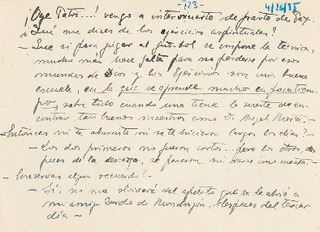 -723-
4/2/85
¡Oye Patri...! vengo a entrevistarte de parte de Pax.
- ¿Qué me dices de los ejercicios espirituales?
- Que si para jugar al futbol se impone la técnica,
mucho más hace falta para no perderse por esos
mundos de Dios y los Ejercicios son una buena
escuela, en la que se aprende mucho en poco tiem-
po, sobre todo cuando uno tiene la suerte de en-
contrar tan buenos maestros como D. Angel
- Entonces ni te aburriste ni se te hicieron largos los días? -
- Los dos primeros no fueron cortos... pero los otros, des-
pues de la se pasaron
- Conservas algun recuerdo? -
- Sí, no me olvidaré del apetito que se le abrió a
mi amigo de Mondragón, despues del tercer
día -